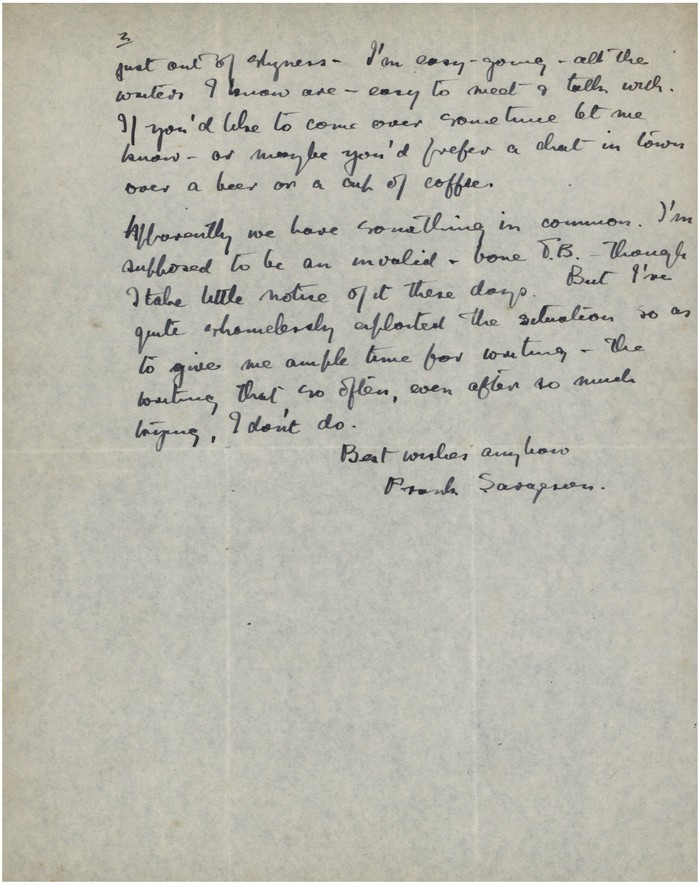 3
just out of shyness - I'm easy-going - all the
writers I know are - easy to meet & talk with.
If you'd like to come over sometime let me
know - or maybe you'd prefer a chat in town
over a beer or a cup of coffee.
Apparently we have something in common. I'm
supposed to be an invalid - bone T.B. - though
I take little notice of it these days. But I've
quite shamelessly exploited the situation so as
to give me ample time for writing - the
writing that so often, even after so much
trying, I don't do.
Best wishes anyhow
Frank Sargeson.